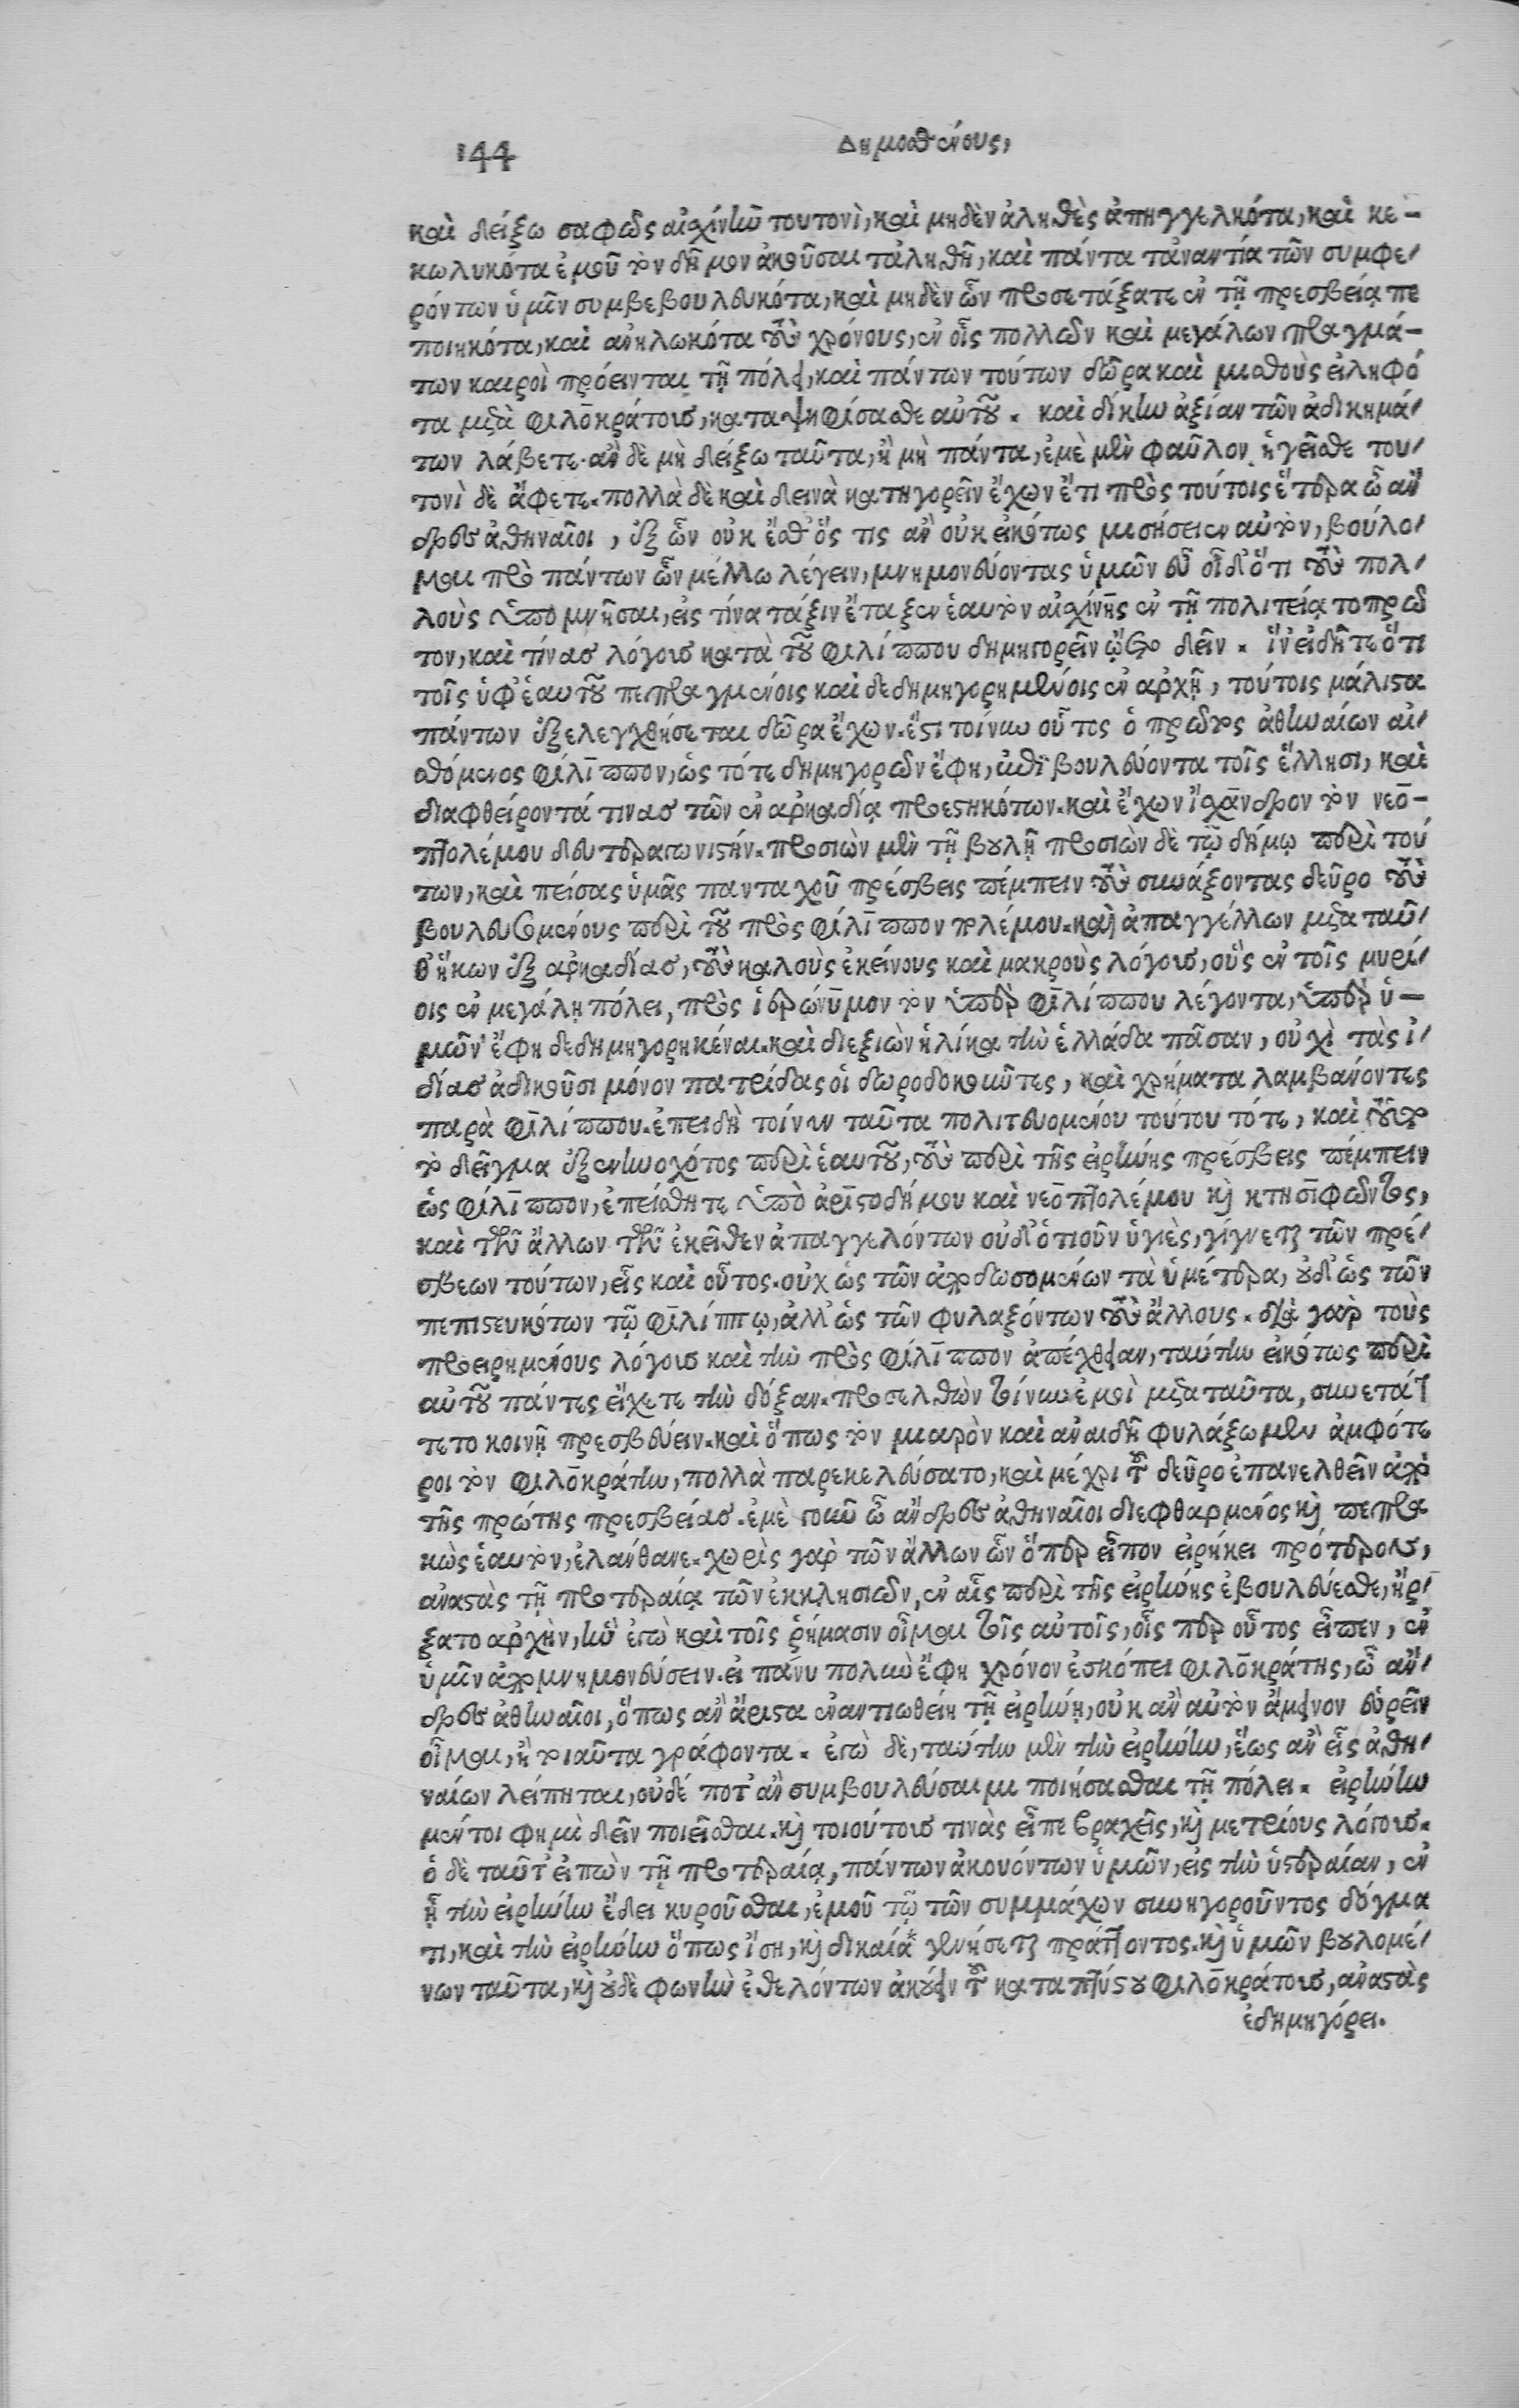 144
Δημοσθένους,
καὶ δείξω σαφῶς αἰσχίνην τουτονὶ, καὶ μηδὲν ἀληθὲς ἀπηγγελκότα, καὶ κε-
κωλυκότα ἐμοῦ τὸν δῆμον ἀκοῦσαι τἀληθῆ, καὶ πάντα τἀναντία τῶν συμφε/
ρόντων ὑμῖν συμβεβουλευκότα, καὶ μηδὲν ὧν προσετάξατε ἐν τῇ πρεσβείᾳ πε
ποιηκότα, καὶ ἀνηλωκότα τοὺς χρόνους, ἐν οἷς πολλῶν καὶ μεγάλων πραγμά-
των καιροὶ πρόεινται τῇ πόλει, καὶ πάντων τούτων δῶρα καὶ μισθοὺς εἰληφό
τα μετὰ φιλοκράτους, καταψηφίσασθε αὐτοῦ. καὶ δίκην ἀξίαν τῶν ἀδικημά/
των λάβετε. ἂν δὲ μὴ δείξω ταῦτα, ἢ μὴ πάντα, ἐμὲ μὲν φαῦλον ἡγεῖσθε του/
τονὶ δὲ ἄφετε. πολλὰ δὲ καὶ δεινὰ κατηγορεῖν ἔχων ἔτι πρὸς τούτοις ἕτερα ὦ ἄν
δρες ἀθηναῖοι, ἐξ ὧν οὐκ ἔσθ' ὅς τις ἂν οὐκ εἰκότως μισήσειεν αὐτὸν, βούλο/
μαι πρὸ πάντων ὧν μέλλω λέγειν, μνημονεύοντας ὑμῶν εὖ οἶδ' ὅτι τοὺς πολ/
λοὺς ὑπομνῆσαι, εἰς τίνα τάξιν ἔταξεν ἑαυτὸν αἰσχίνης ἐν τῇ πολιτείᾳ τοπρῶ
τον, καὶ τίνας λόγους κατὰ τοῦ φιλίππου δημηγορεῖν ᾤετο δεῖν. ἵν' εἰδῆτε ὅτι
τοῖς ὑφ' ἑαυτοῦ πεπραγμένοις καὶ δεδημηγορημένοις ἐν ἀρχῇ, τούτοις μάλιστα
πάντων ἐξελεγχθήσεται δῶρα ἔχων. ἔστι τοίνυν οὗτος ὁ πρῶτος ἀθηναίων αἰ/
σθόμενος φίλιππον, ὡς τότε δημηγορῶν ἔφη, ἐπιβουλεύοντα τοῖς ἕλλησι, καὶ
διαφθείροντά τινας τῶν ἐν ἀρκαδίᾳ προεστηκότων. καὶ ἔχων ἴσχανδρον τὸν νεο-
πτολέμου δευτεραγωνιστήν. προσιὼν μὲν τῇ βουλῇ προσιὼν δὲ τῷ δήμῳ περὶ τού
των, καὶ πείσας ὑμᾶς πανταχοῦ πρέσβεις πέμπειν τοὺς συνάξοντας δεῦρο τοὺς
βουλευσομένους περὶ τοῦ πρὸς φίλιππον πολέμου. καὶ ἀπαγγέλλων μετα ταῦ/
θ' ἥκων ἐξ ἀρκαδίας, τοὺς καλοὺς ἐκείνους καὶ μακροὺς λόγους, οὓς ἐν τοῖς μυρί/
οις ἐν μεγάλῃ πόλει, πρὸς ἱερώνυμον τὸν ὑπὲρ φιλίππου λέγοντα, ὑπὲρ ὑ-
μῶν ἔφη δεδημηγορηκέναι. καὶ διεξιὼν ἡλίκα τὴν ἑλλάδα πᾶσαν, οὐχὶ τὰς ἰ/
δίας ἀδικοῦσι μόνον πατρίδας οἱ δωροδοκοῦντες, καὶ χρήματα λαμβάνοντες
παρὰ φιλίππου. ἐπειδὴ τοίνυν ταῦτα πολιτευομένου τούτου τότε, καὶ τοῦτο
τὸ δεῖγμα ἐξενηνοχότος περὶ ἑαυτοῦ, τοὺς περὶ τῆς εἰρήνης πρέσβεις πέμπειν
ὡς φίλιππον, ἐπείσθητε ὑπὸ ἀριστοδήμου καὶ νεοπτολέμου κὶ κτησιφῶντος,
καὶ τῶν ἄλλων τῶν ἐκεῖθεν ἀπαγγελόντων οὐδ' ὁτιοῦν ὑγιὲς, γίγνεται τῶν πρέ/
σβεων τούτων, εἷς καὶ οὗτος. οὐχ ὡς τῶν ἀποδωσομένων τὰ ὑμέτερα, οὐδ' ὡς τῶν
πεπιστευκότων τῷ φιλίππῳ, ἀλλ' ὡς τῶν φυλαξόντων τοὺς ἄλλους. διὰ γὰρ τοὺς
προειρημένους λόγους καὶ τὴν πρὸς φίλιππον ἀπέχθειαν, ταύτην εἰκότως περὶ
αὐτοῦ πάντες εἴχετε τὴν δόξαν. προσελθὼν τοίνυν ἐμοὶ μετα ταῦτα, συνετάτ
τετο κοινῇ πρεσβεύειν. καὶ ὅπως τὸν μιαρὸν καὶ ἀναιδῆ φυλάξωμεν ἀμφότε
ροι τὸν φιλοκράτην, πολλὰ παρεκελεύσατο, καὶ μέχρι τοῦ δεῦρο ἐπανελθεῖν ἀπὸ
τῆς πρώτης πρεσβείας. ἐμὲ γοῦν ὦ ἄνδρες ἀθηναῖοι διεφθαρμένος κὶ πεπρα
κὼς ἑαυτὸν, ἐλάνθανε. χωρὶς γὰρ τῶν ἄλλων ὧν ὅπερ εἶπον εἰρήκει πρότερον,
ἀναστὰς τῇ προτεραίᾳ τῶν ἐκκλησιῶν, ἐν αἷς περὶ τῆς εἰρήνης ἐβουλεύεσθε, ἤρ/
ξατο ἀρχὴν, ἣν ἐγὼ καὶ τοῖς ῥήμασιν οἶμαι τοῖς αὐτοῖς, οἷς περ οὗτος εἶπεν, ἐν
ὑμῖν ἀπομνημονεύσειν. εἰ πάνυ πολὺν ἔφη χρόνον ἐσκόπει φιλοκράτης, ὦ ἄν/
δρες ἀθηναῖοι, ὅπως ἂν ἄριστα ἐναντιωθείη τῇ εἰρήνῃ, οὐκ ἂν αὐτὸν ἄμεινον εὑρεῖν
οἶμαι, ἢ τοιαῦτα γράφοντα. ἐγὼ δὲ, ταύτην μὲν τὴν εἰρήνην, ἕως ἂν εἷς ἀθη/
ναίων λείπηται, οὐδέ ποτ' ἂν συμβουλεύσαιμι ποιήσασθαι τῇ πόλει. εἰρήνην
μέντοι φημὶ δεῖν ποιεῖσθαι. κὶ τοιούτους τινὰς εἶπε βραχεῖς, κὶ μετρίους λόγους.
ὁ δὲ ταῦτ' εἰπὼν τῇ προτεραίᾳ, πάντων ἀκουόντων ὑμῶν, εἰς τὴν ὑστεραίαν, ἐν
ᾗ τὴν εἰρήνην ἔδει κυροῦσθαι, ἐμοῦ τῷ τῶν συμμάχων συνηγοροῦντος δόγμα
τι, καὶ τὴν εἰρήνην ὅπως ἴση, κὶ δικαία* γενήσεται πράττοντος. κὶ ὑμῶν βουλομέ/
νων ταῦτα, κὶ οὐδὲ φωνὴν ἐθελόντων ἀκούειν τοῦ καταπτύστου φιλοκράτους, ἀναστὰς
ἐδημηγόρει.